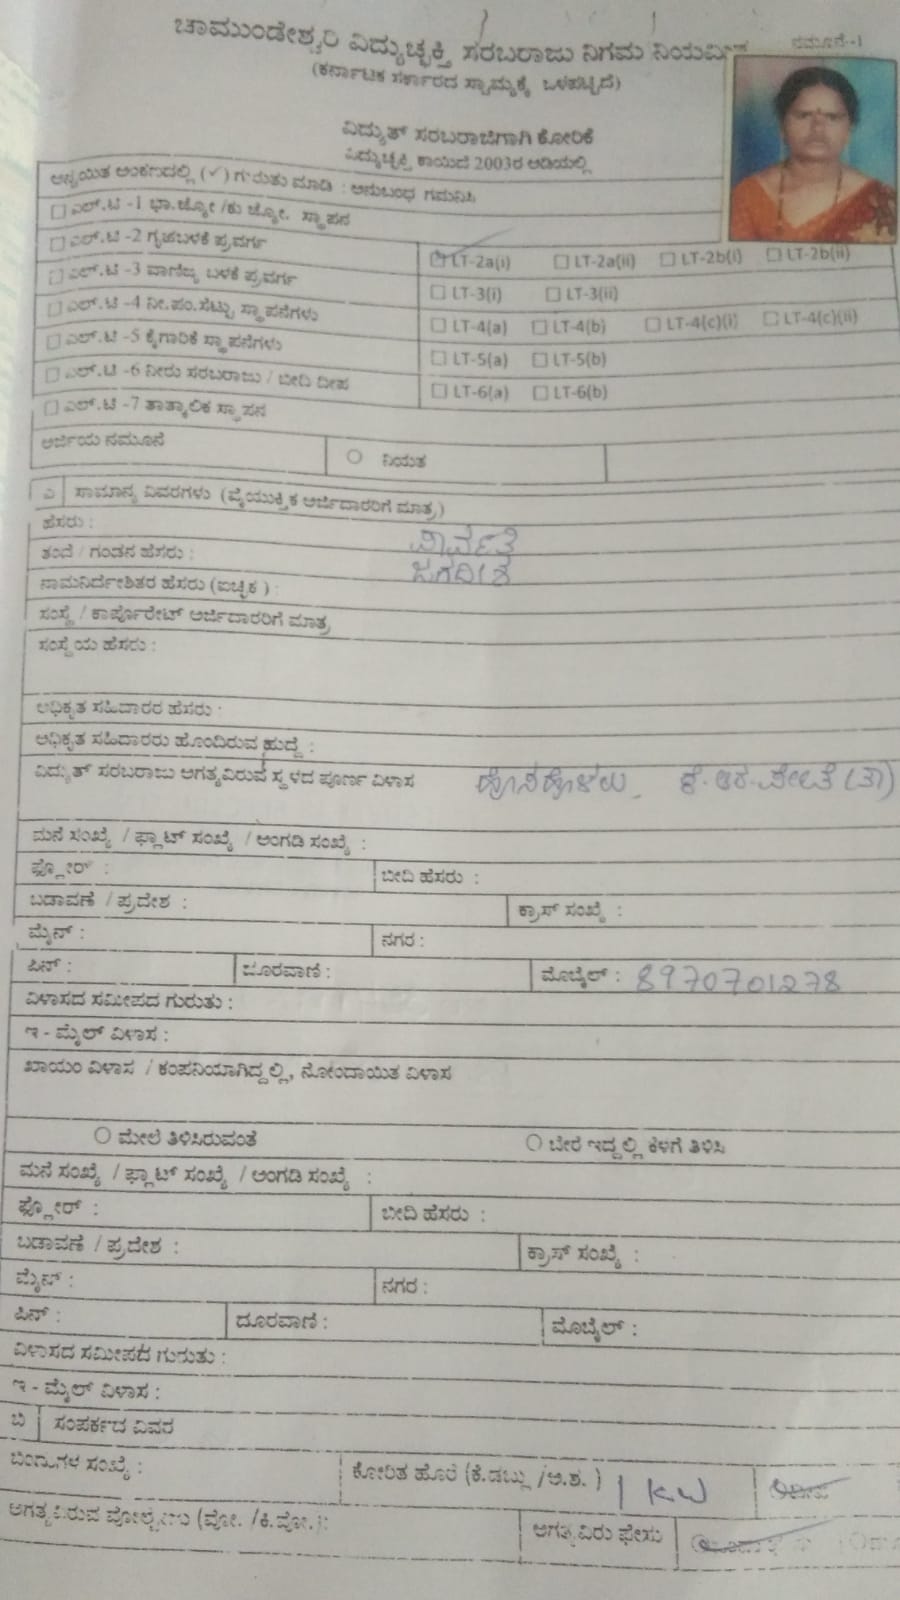 ನಮೂನೆ-1
ಚಾಮುಂಡೇಶ್ವರಿ ವಿದ್ಯುಚ್ಛಕ್ತಿ ಸರಬರಾಜು ನಿಗಮ
(ಕರ್ನಾಟಕ ಸರ್ಕಾರದ ಸ್ವಾಮ್ಯಕ್ಕೆ ಒಳಪಟ್ಟಿದೆ)
ವಿದ್ಯುತ್ ಸರಬರಾಜಿಗಾಗಿ ಕೋರಿಕೆ
ವಿದ್ಯುಚ್ಛಕ್ತಿ ಕಾಯಿದೆ 2003ರ ಅಡಿಯಲ್ಲಿ
ಅನ್ವಯಿತ ಅಂಕಣದಲ್ಲಿ (✓) ಗುರುತು ಮಾಡಿ : ಅನುಬಂಧ ಗಮನಿಸಿ
□ ಎಲ್.ಟಿ -1 ಭಾ.ಜ್ಯೋ /ಕು ಜ್ಯೋ. ಸ್ಥಾಪನ
□ ಎಲ್.ಟಿ -2 ಗೃಹಬಳಕೆ ಪ್ರವರ್ಗ ☑ LT-2a(i) □ LT-2a(ii) □ LT-2b(i) □ LT-2b(ii)
□ ಎಲ್.ಟಿ -3 ವಾಣಿಜ್ಯ ಬಳಕೆ ಪ್ರವರ್ಗ □ LT-3(i) □ LT-3(ii)
□ ಎಲ್.ಟಿ -4 ನೀ.ಪಂ.ಸೆಟ್ಟು ಸ್ಥಾಪನೆಗಳು □ LT-4(a) □ LT-4(b) □ LT-4(c)(i) □ LT-4(c)(ii)
□ ಎಲ್.ಟಿ -5 ಕೈಗಾರಿಕೆ ಸ್ಥಾಪನೆಗಳು □ LT-5(a) □ LT-5(b)
□ ಎಲ್.ಟಿ -6 ನೀರು ಸರಬರಾಜು / ಬೀದಿ ದೀಪ □ LT-6(a) □ LT-6(b)
□ ಎಲ್.ಟಿ -7 ತಾತ್ಕಾಲಿಕ ಸ್ಥಾಪನ
ಅರ್ಜಿಯ ನಮೂನೆ ○ ನಿಯತ
ಎ ಸಾಮಾನ್ಯ ವಿವರಗಳು (ವೈಯುಕ್ತಿಕ ಅರ್ಜಿದಾರರಿಗೆ ಮಾತ್ರ)
ಹೆಸರು : ಪಾರ್ವತಿ
ತಂದೆ / ಗಂಡನ ಹೆಸರು : ಜಗದೀಶ
ನಾಮನಿರ್ದೇಶಿತರ ಹೆಸರು (ಐಚ್ಛಿಕ) :
ಸಂಸ್ಥೆ / ಕಾರ್ಪೊರೇಟ್ ಅರ್ಜಿದಾರರಿಗೆ ಮಾತ್ರ
ಸಂಸ್ಥೆಯ ಹೆಸರು :
ಅಧಿಕೃತ ಸಹಿದಾರರ ಹೆಸರು :
ಅಧಿಕೃತ ಸಹಿದಾರರು ಹೊಂದಿರುವ ಹುದ್ದೆ :
ವಿದ್ಯುತ್ ಸರಬರಾಜು ಅಗತ್ಯವಿರುವ ಸ್ಥಳದ ಪೂರ್ಣ ವಿಳಾಸ ಹೊಸಹೊಳಲು, ಕೆ-ಆರ-ಪೇಟೆ (ತಾ)
ಮನೆ ಸಂಖ್ಯೆ / ಫ್ಲಾಟ್ ಸಂಖ್ಯೆ / ಅಂಗಡಿ ಸಂಖ್ಯೆ :
ಫ್ಲೋರ್ : ಬೀದಿ ಹೆಸರು :
ಬಡಾವಣೆ / ಪ್ರದೇಶ : ಕ್ರಾಸ್ ಸಂಖ್ಯೆ :
ಮೈನ್ : ನಗರ :
ಪಿನ್ : ದೂರವಾಣಿ : ಮೊಬೈಲ್ : 8970701278
ವಿಳಾಸದ ಸಮೀಪದ ಗುರುತು :
ಇ - ಮೈಲ್ ವಿಳಾಸ :
ಖಾಯಂ ವಿಳಾಸ / ಕಂಪನಿಯಾಗಿದ್ದಲ್ಲಿ, ನೋಂದಾಯಿತ ವಿಳಾಸ
○ ಮೇಲೆ ತಿಳಿಸಿರುವಂತೆ ○ ಬೇರೆ ಇದ್ದಲ್ಲಿ ಕೆಳಗೆ ತಿಳಿಸಿ
ಮನೆ ಸಂಖ್ಯೆ / ಫ್ಲಾಟ್ ಸಂಖ್ಯೆ / ಅಂಗಡಿ ಸಂಖ್ಯೆ :
ಫ್ಲೋರ್ : ಬೀದಿ ಹೆಸರು :
ಬಡಾವಣೆ / ಪ್ರದೇಶ : ಕ್ರಾಸ್ ಸಂಖ್ಯೆ :
ಮೈನ್ : ನಗರ :
ಪಿನ್ : ದೂರವಾಣಿ : ಮೊಬೈಲ್ :
ವಿಳಾಸದ ಸಮೀಪದ ಗುರುತು :
ಇ - ಮೈಲ್ ವಿಳಾಸ :
ಬಿ ಸಂಪರ್ಕದ ವಿವರ
ಬಿಂದುಗಳ ಸಂಖ್ಯೆ : ಕೋರಿತ ಹೊರೆ (ಕೆ.ಡಬ್ಲು /ಅ.ಶ. ) 1 KW
ಅಗತ್ಯವಿರುವ (ವೋ. /ಕಿ.ವೋ.): ಅಗತ್ಯವಿರು ಫೇಸು